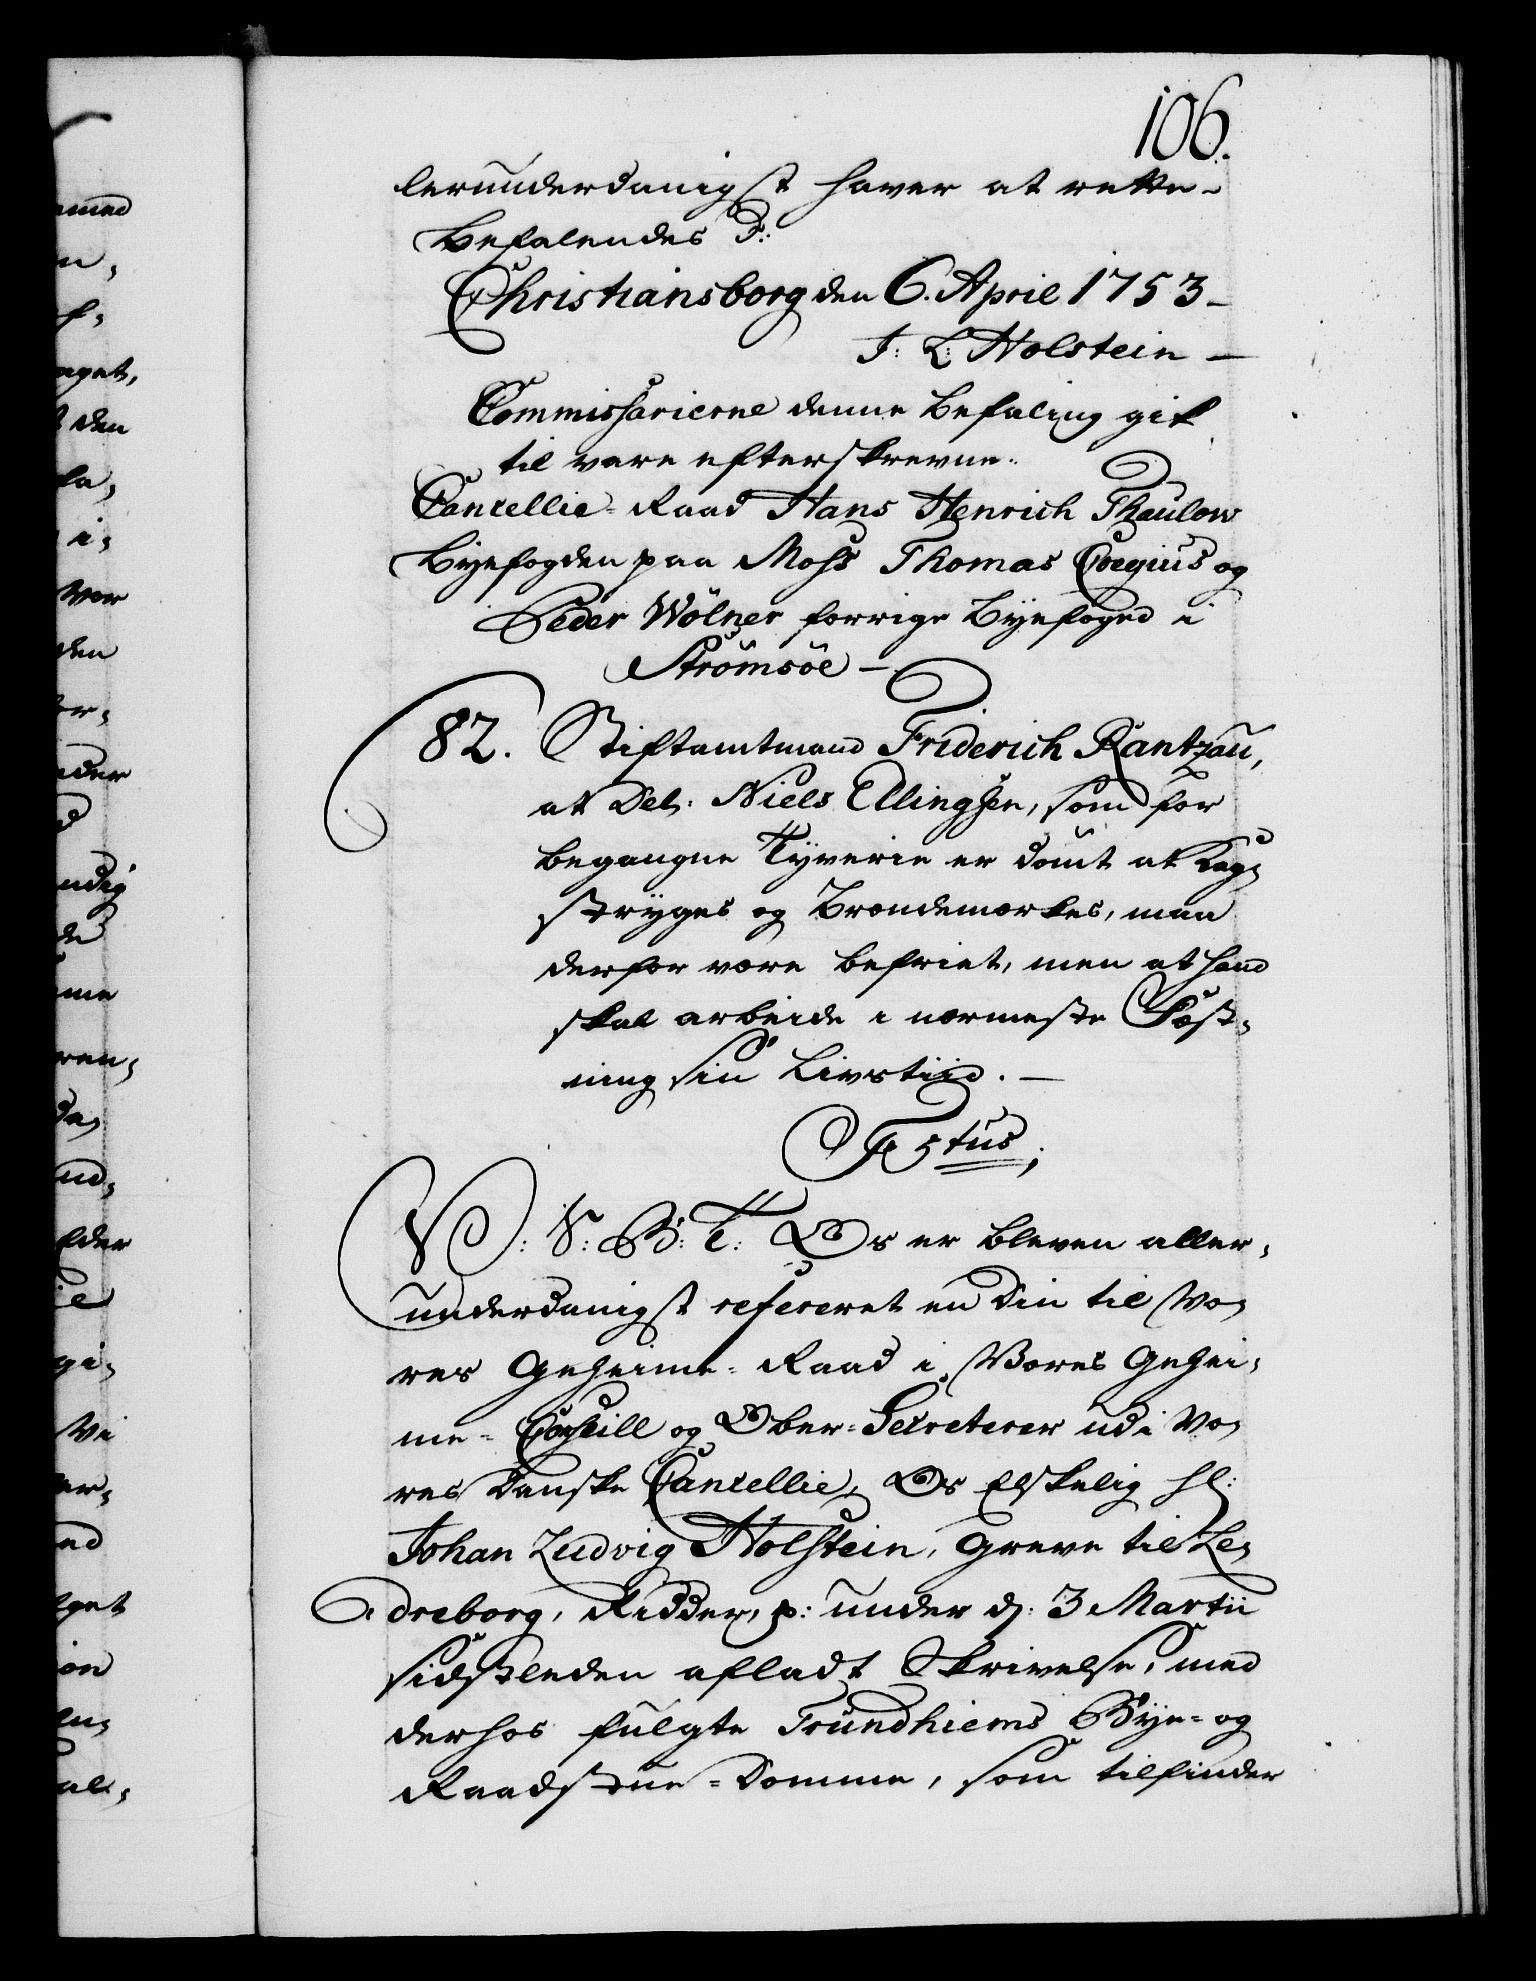 106.
lerunderdanigst haver at rette-
Befalendes P:
Christiansborg den 6. April 1753-
J: L: Holstein -
Commissarierne denne Befaling gik
til vare efterskrevne:
Cancellie-Raad Hans Henrich Thaulow
Byefogden paa Moss Thomas Coegius og
Peder Wölner forrige Byefoged i
Strömsöe -
82. Stiftamtmand Friderich Rantzau,
at Del: Niels Ellingsen, som for
begangne Tyverie er dömt at Kag-
stryges og Brændemærkes, maa
derfor være befriet, men at hand
skal arbeide i nærmeste Fæst-
ning sin Livstiid. -
F5tus;
V: S: G: T: Os er bleven aller-
underdanigst refereret en Din til Vo-
res Geheime-Raad i Vores Gehei-
me-Conseill og Ober-Secreterer udi Vo-
res Danske Cancellie, Os Elskelig Hl:
Johan Ludvig Holstein, Greve til Le-
dreborg, Ridder, p: under d: 3 Martii
sidstleden afladt Skrivelse, med
derhos fulgte Trundhiems Bye- og
Raadstue-Domme, som tilfinder